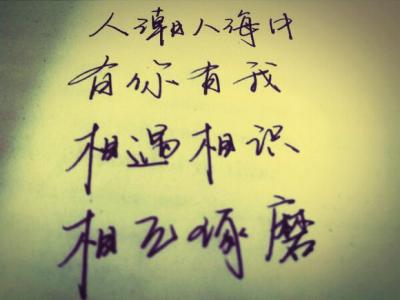 人潮人海中
有你有我
相遇相识
相互琢磨